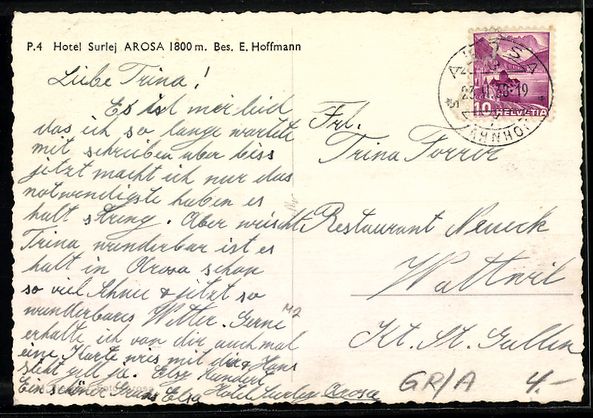 P.4 Hotel Surlej AROSA 1800 m. Bes. E. Hoffmann
Liebe Trina!
Es ist mir leid
das ich so lange wartete
mit schreiben aber biss
jetzt macht ich nur das
notwendigste haben es
halt streng. Aber weischt
Trina wunderbar ist es
halt in Arosa schon
so viel Schnee & jetzt so
wunderbares Wetter. Gerne
erhalte ich von dir auch mal
eine Karte wies mit dir & Hans
steht
Ein schöner Gruss Elsa Hotel Surlej Arosa
Frl.
Trina Forrer
Restaurant Neueck
Wattwil
Kt. St. Gallen
AROSA
10 HELVETIA
BAHNHOF
GR/A 4.-